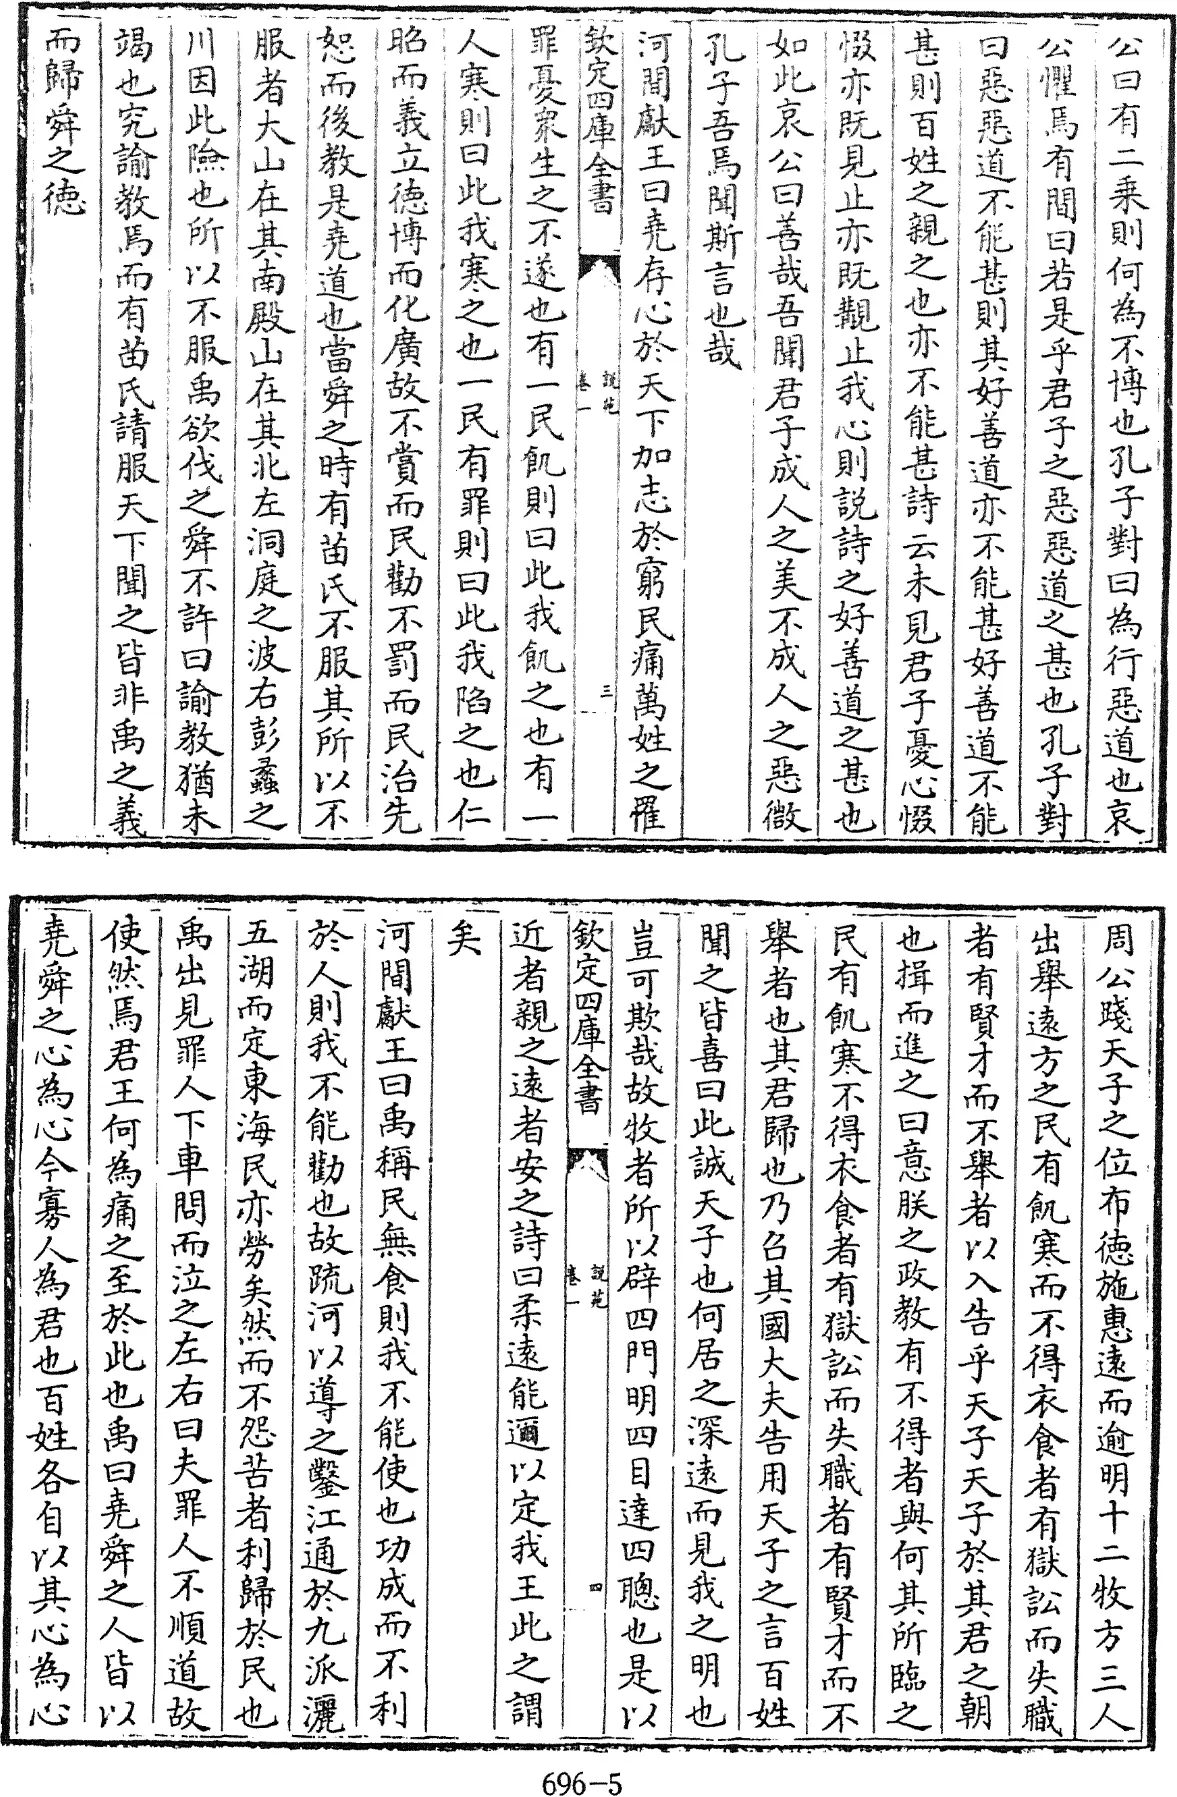 公曰有二乗則何為不博也孔子對曰為行惡道也哀
公懼焉有間曰若是乎君子之惡惡道之甚也孔子對
曰惡惡道不能甚則其好善道亦不能甚好善道不能
甚則百姓之親之也亦不能甚詩云未見君子憂心惙
惙亦既見止亦既觀止我心則説詩之好善道之甚也
如此哀公曰善哉吾聞君子成人之美不成人之惡微
孔子吾焉聞斯言也哉
河間獻王曰堯存心於天下加志於窮民痛萬姓之罹
欽定四庫全書
説苑
卷一
三
罪憂衆生之不遂也有一民飢則曰此我飢之也有一
人寒則曰此我寒之也一民有罪則曰此我陷之也仁
昭而義立徳博而化廣故不賞而民勸不罰而民治先
恕而後教是堯道也當舜之時有苗氏不服其所以不
服者大山在其南殿山在其北左洞庭之波右彭蠡之
川因此險也所以不服禹欲伐之舜不許曰諭教猶未
竭也究諭教焉而有苗氏請服天下聞之皆非禹之義
而歸舜之徳
周公踐天子之位布徳施惠遠而逾明十二牧方三人
出舉遠方之民有飢寒而不得衣食者有獄訟而失職
者有賢才而不舉者以入告乎天子天子於其君之朝
也揖而進之曰意朕之政教有不得者與何其所臨之
民有飢寒不得衣食者有獄訟而失職者有賢才而不
舉者也其君歸也乃召其國大夫告用天子之言百姓
聞之皆喜曰此誠天子也何居之深遠而見我之明也
豈可欺哉故牧者所以辟四門明四目達四聰也是以
欽定四庫全書
説苑
卷一
四
近者親之遠者安之詩曰柔遠能邇以定我王此之謂
矣
河間獻王曰禹稱民無食則我不能使也功成而不利
於人則我不能勸也故疏河以導之鑿江通於九派灑
五湖而定東海民亦勞矣然而不怨苦者利歸於民也
禹出見罪人下車問而泣之左右曰夫罪人不順道故
使然焉君王何為痛之至於此也禹曰堯舜之人皆以
堯舜之心為心今寡人為君也百姓各自以其心為心
696-5